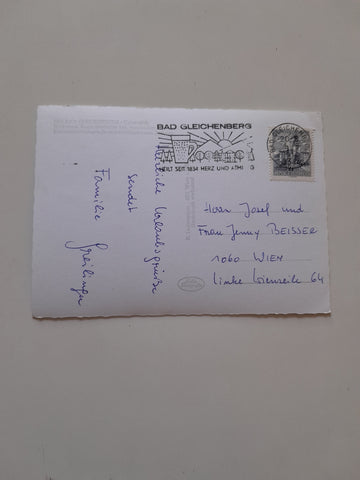 BAD GLEICHENBERG
HEILT SEIT 1834 HERZ UND ATMUNG
Herzliche Urlaubsgrüße
sendet
Familie Greilinger
Herrn Josef und
Frau Jenny BEISSER
1060 WIEN
Linke Wienzeile 64